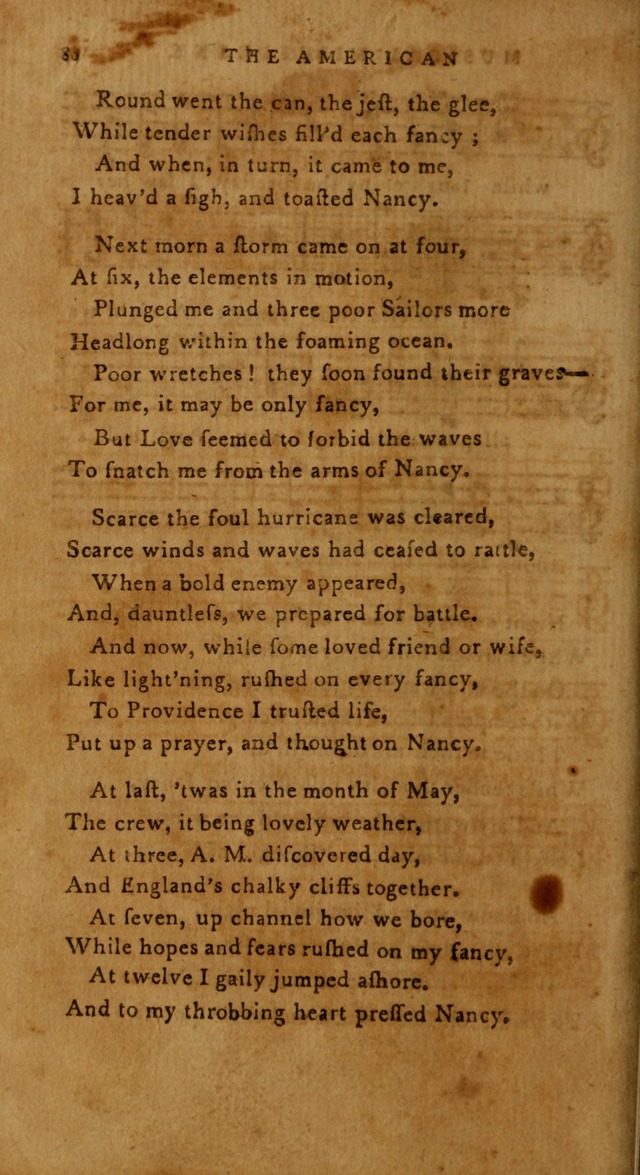 88 THE AMERICAN
Round went the can, the jeſt, the glee,
While tender wiſhes fill'd each fancy ;
And when, in turn, it came to me,
I heav'd a ſigh, and toaſted Nancy.
Next morn a ſtorm came on at four,
At ſix, the elements in motion,
Plunged me and three poor Sailors more
Headlong within the foaming ocean.
Poor wretches ! they ſoon found their graves—
For me, it may be only fancy,
But Love ſeemed to forbid the waves
To ſnatch me from the arms of Nancy.
Scarce the foul hurricane was cleared,
Scarce winds and waves had ceaſed to rattle,
When a bold enemy appeared,
And, dauntleſs, we prepared for battle.
And now, while ſome loved friend or wife,
Like light'ning, ruſhed on every fancy,
To Providence I truſted life,
Put up a prayer, and thought on Nancy.
At laſt, 'twas in the month of May,
The crew, it being lovely weather,
At three, A. M. diſcovered day,
And England's chalky cliffs together.
At ſeven, up channel how we bore,
While hopes and fears ruſhed on my fancy,
At twelve I gaily jumped aſhore.
And to my throbbing heart preſſed Nancy.